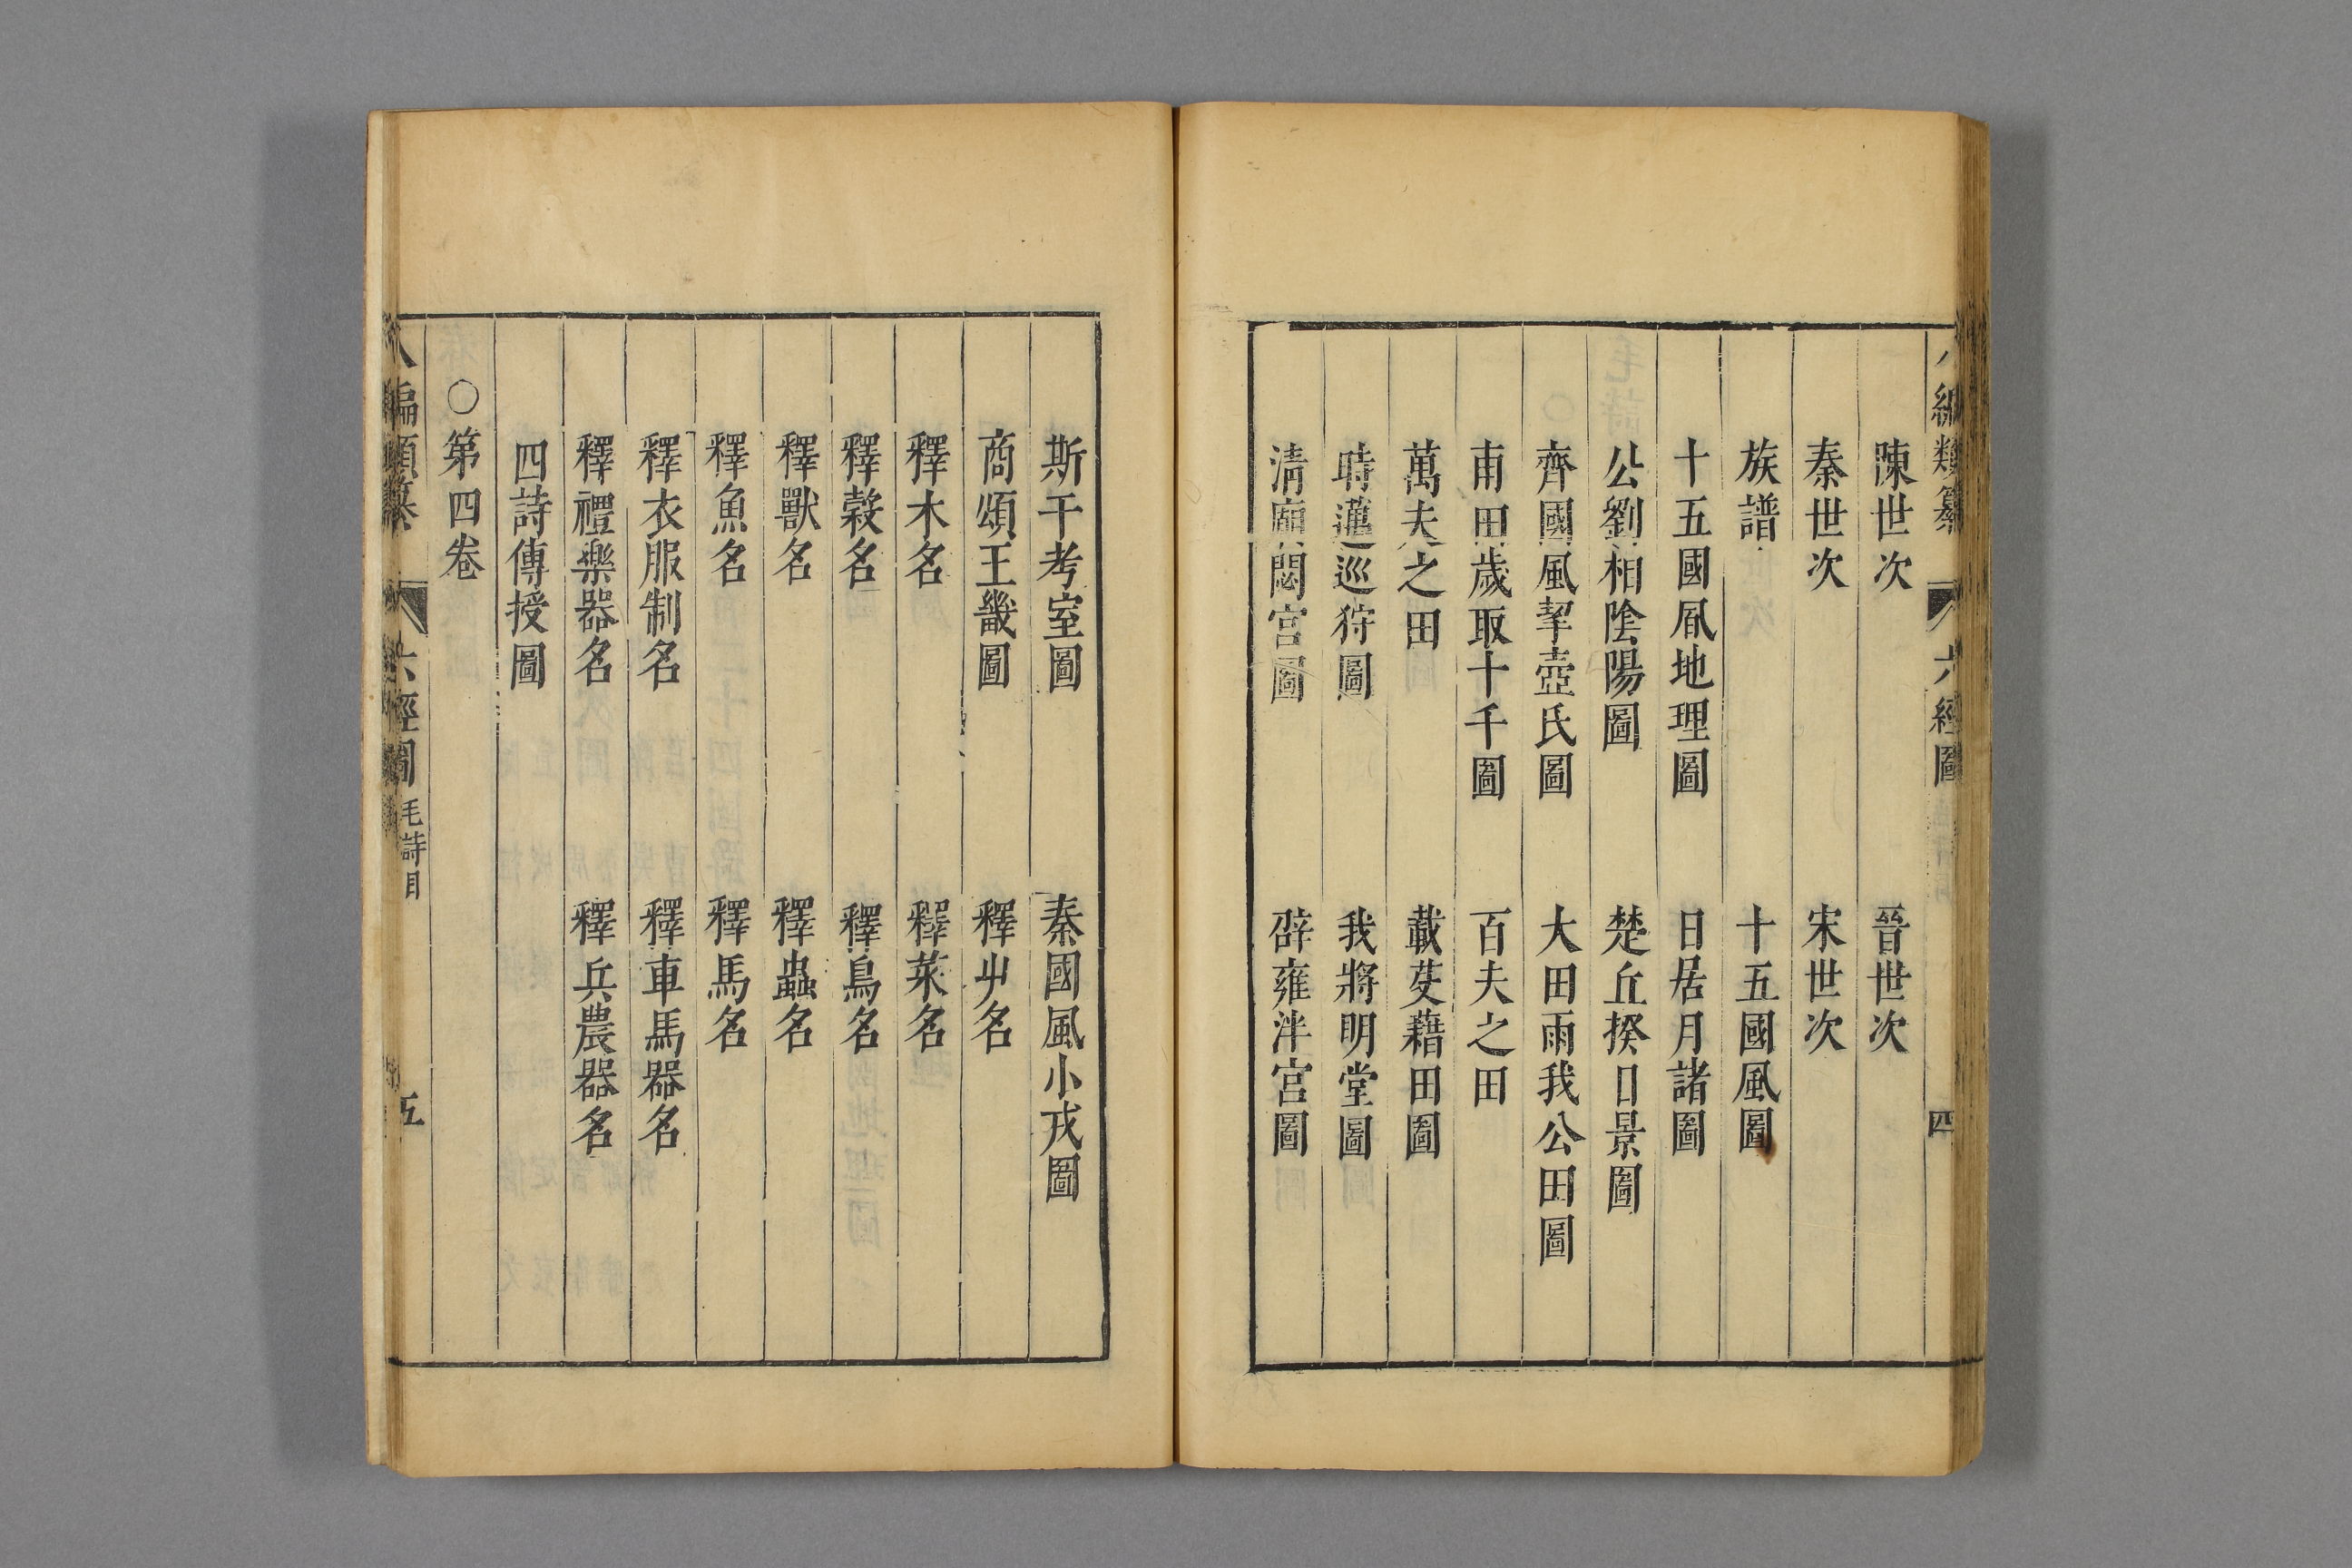 八編類纂 六經圖 四
陳世次 晉世次
秦世次 宋世次
族譜 十五國風圖
十五國風地理圖 日居月諸圖
公劉相陰陽圖 楚丘揆日景圖
齊國風挈壺氏圖 大田雨我公田圖
甫田歲取十千圖 百夫之田
萬夫之田 載芟藉田圖
時邁巡狩圖 我將明堂圖
清廟閟宮圖 辟雍泮宮圖
斯干考室圖 秦國風小戎圖
商頌王畿圖 釋屮名
釋木名 釋菜名
釋穀名 釋鳥名
釋獸名 釋蟲名
釋魚名 釋馬名
釋衣服制名 釋車馬器名
釋禮樂器名 釋兵農器名
四詩傳授圖
○第四卷
八編類纂 六經圖 毛詩目 五